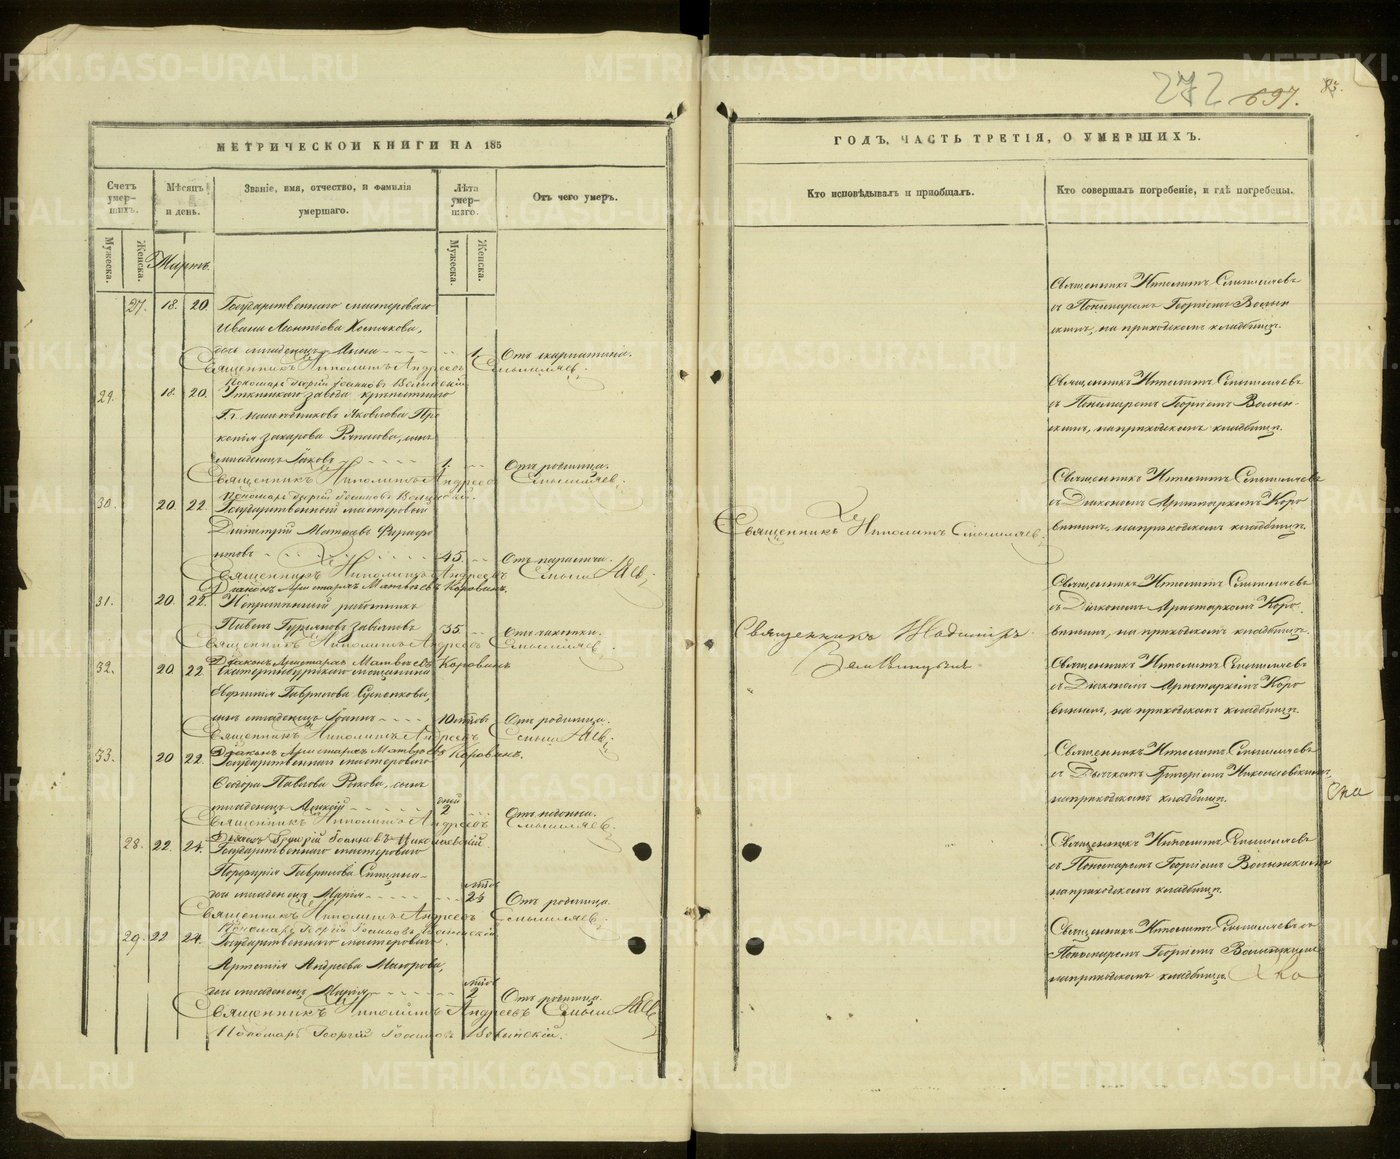 272 697. 83.
МЕТРИЧЕСКОЙ КНИГИ НА 185
Счетъ умер-шихъ.
Мѣсяцъ и день.
Званіе, имя, отчество, и фамилія умершаго.
Лѣта умер-шаго.
Отъ чего умеръ.
Мужеска. Женска.
Мужеска. Женска.
Мартъ.
27. 18. 20. Государственнаго мастероваго
Ивана Леонтьева
дочь младенецъ Анна 1 Отъ скарлатины.
Священникъ Ипполитъ Андреевъ Смышляевъ.
Пономарь Георгій Іоанновъ Волынскій
29. 18. 20. завода крѣпостнаго
Г.г. наслѣдниковъ Яковлева Про
копія Захарова сынъ
младенецъ Іаковъ 1. Отъ родимца.
Священникъ Ипполитъ Андреевъ Смышляевъ.
Пономарь Георгій Іоанновъ Волынскій.
30. 20. 22. Государственный мастеровой
Димитрій
45. Отъ паралича.
Священникъ Ипполитъ Андреевъ Смышляевъ
Діаконъ Аристархъ Матвѣевъ Коровинъ.
31. 20. 22. Непремѣнный работникъ
Павелъ 35. Отъ чахотки.
Священникъ Ипполитъ Андреевъ Смышляевъ.
Діаконъ Аристархъ Матвѣевъ Коровинъ
32. 20. 22. Екатеринбургскаго мѣщанина
Гаврилова
сынъ младенецъ Іоаннъ 10 Отъ родимца.
Священникъ Ипполитъ Андреевъ Смышляевъ
Діаконъ Аристархъ Матвѣевъ Коровинъ.
33. 20 22. Государственнаго мастероваго
Ѳеодора Павлова сынъ
младенецъ Алексѣй дней 2
Священникъ Ипполитъ Андреевъ Смышляевъ.
Григорій Іоанновъ Николаевскій
28. 22. 24. Государственнаго мастероваго
Порфирія Гаврилова
дочь младенецъ Марія Отъ родимца.
Священникъ Ипполитъ Андреевъ Смышляевъ.
Пономарь Георгій Іоанновъ Волынскій
29. 22 24. Государственнаго мастероваго
Артемія Андреева
дочь младенецъ Марія 2 Отъ родимца.
Священникъ Ипполитъ Андреевъ Смышляевъ
Пономарь Георгій Іоанновъ Волынскій.
ГОДЪ, ЧАСТЬ ТРЕТІЯ, О УМЕРШИХЪ.
Кто исповѣдывалъ и пріобщалъ.
Кто совершалъ погребеніе, и гдѣ погребены.
Священникъ Ипполитъ Смышляевъ.
Священникъ Владиміръ
Священникъ Ипполитъ Смышляевъ
съ Пономаремъ Георгіемъ Волын
скимъ, на приходскомъ кладбищѣ.
Священникъ Ипполитъ Смышляевъ
съ Пономаремъ Георгіемъ Волын-
скимъ, на приходскомъ кладбищѣ.
Священникъ Ипполитъ Смышляевъ
съ Діакономъ Аристархомъ Коро
винымъ, на приходскомъ кладбищѣ.
Священникъ Ипполитъ Смышляевъ
съ Діакономъ Аристархомъ Коро
винымъ, на приходскомъ кладбищѣ.
Священникъ Ипполитъ Смышляевъ
съ Діакономъ Аристархомъ Коро
винымъ, на приходскомъ кладбищѣ.
Священникъ Ипполитъ Смышляевъ
съ Дьячкомъ Григоріемъ Николаевскимъ,
на приходскомъ кладбищѣ.
Священникъ Ипполитъ Смышляевъ
съ Пономаремъ Георгіемъ Волынскимъ
на приходскомъ кладбищѣ.
Священникъ Ипполитъ Смышляевъ съ
Пономаремъ Георгіемъ Волынскимъ
на приходскомъ кладбищѣ.
METRIKI.GASO-URAL.RU